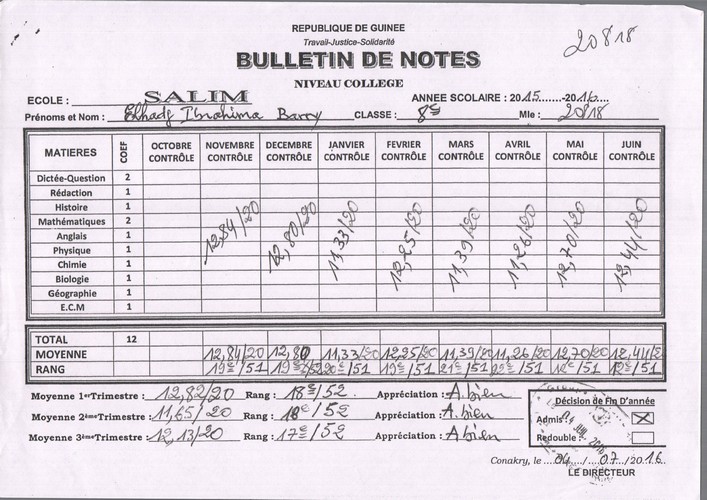 REPUBLIQUE DE GUINEE
Travail-Justice-Solidarité
20818
BULLETIN DE NOTES
NIVEAU COLLEGE
ECOLE : SALIM ANNEE SCOLAIRE : 2015.......-2016....
Prénoms et Nom : Elhadj Ibrahima Barry CLASSE : 8e Mle : 20818
MATIERES COEF OCTOBRE CONTRÔLE NOVEMBRE CONTRÔLE DECEMBRE CONTRÔLE JANVIER CONTRÔLE FEVRIER CONTRÔLE MARS CONTRÔLE AVRIL CONTRÔLE MAI CONTRÔLE JUIN CONTRÔLE
Dictée-Question 2
Rédaction 1
Histoire 1
Mathématiques 2
Anglais 1
Physique 1
Chimie 1
Biologie 1
Géographie 1
E.C.M 1
12,84/20 12,80/20 11,33/20 12,25/20 11,39/20 11,26/20 12,70/20 12,44/20
TOTAL 12
MOYENNE 12,84/20 12,80 11,33/20 12,25/20 11,39/20 11,26/20 12,70/20 12,44/2
RANG 19e/51 19e/52 20e/51 19e/51 21e/51 /51 /51 /51
Moyenne 1erTrimestre : 12,82/20 Rang : 18e/52 Appréciation : A.bien
Moyenne 2èmeTrimestre : 11,65/20 Rang : 18e/52 Appréciation : A.bien
Moyenne 3èmeTrimestre : 12,13/20 Rang : 17e/52 Appréciation : A bien
Décision de Fin D'année
Admis :
Redouble :
Conakry, le ....04..../....07..../2016.
LE DIRECTEUR